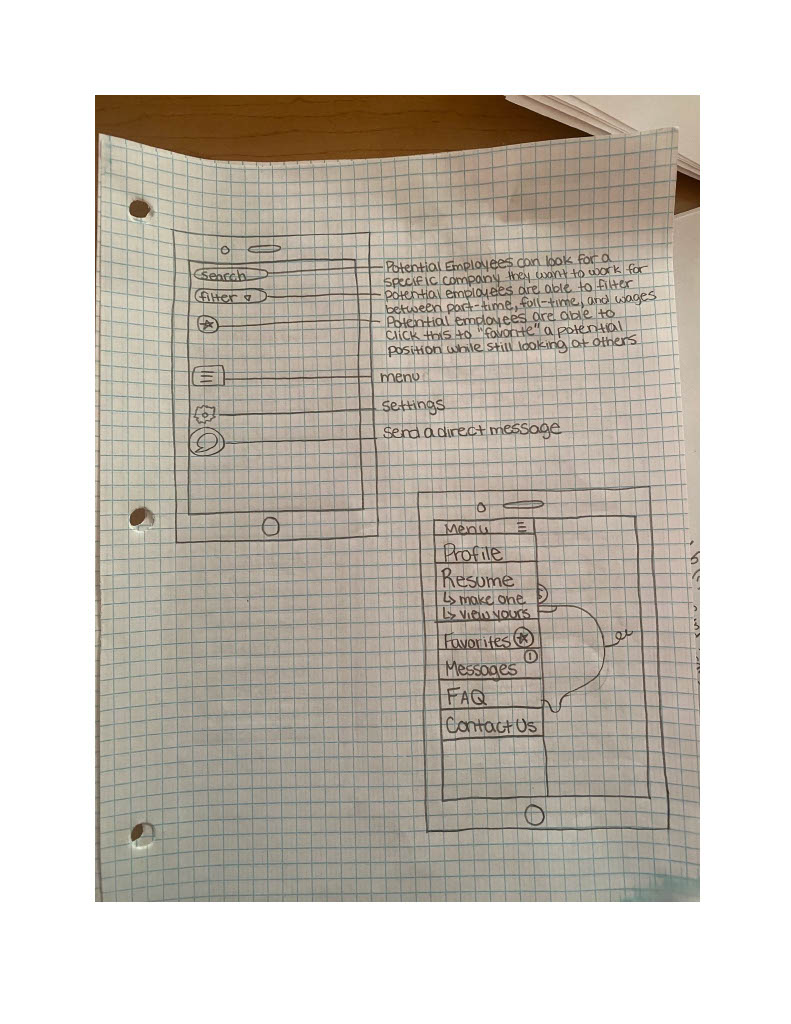 Search
Potential Employees can look for a
specific company they want to work for
filter
potential employees are able to filter
between part-time, full-time, and wages
Potential employees are able to
click this to "favorite" a potential
position while still looking at others
menu
settings
send a direct message
Menu
Profile
Resume
↳ make one
↳ view yours
Favorites
Messages
FAQ
Contact Us